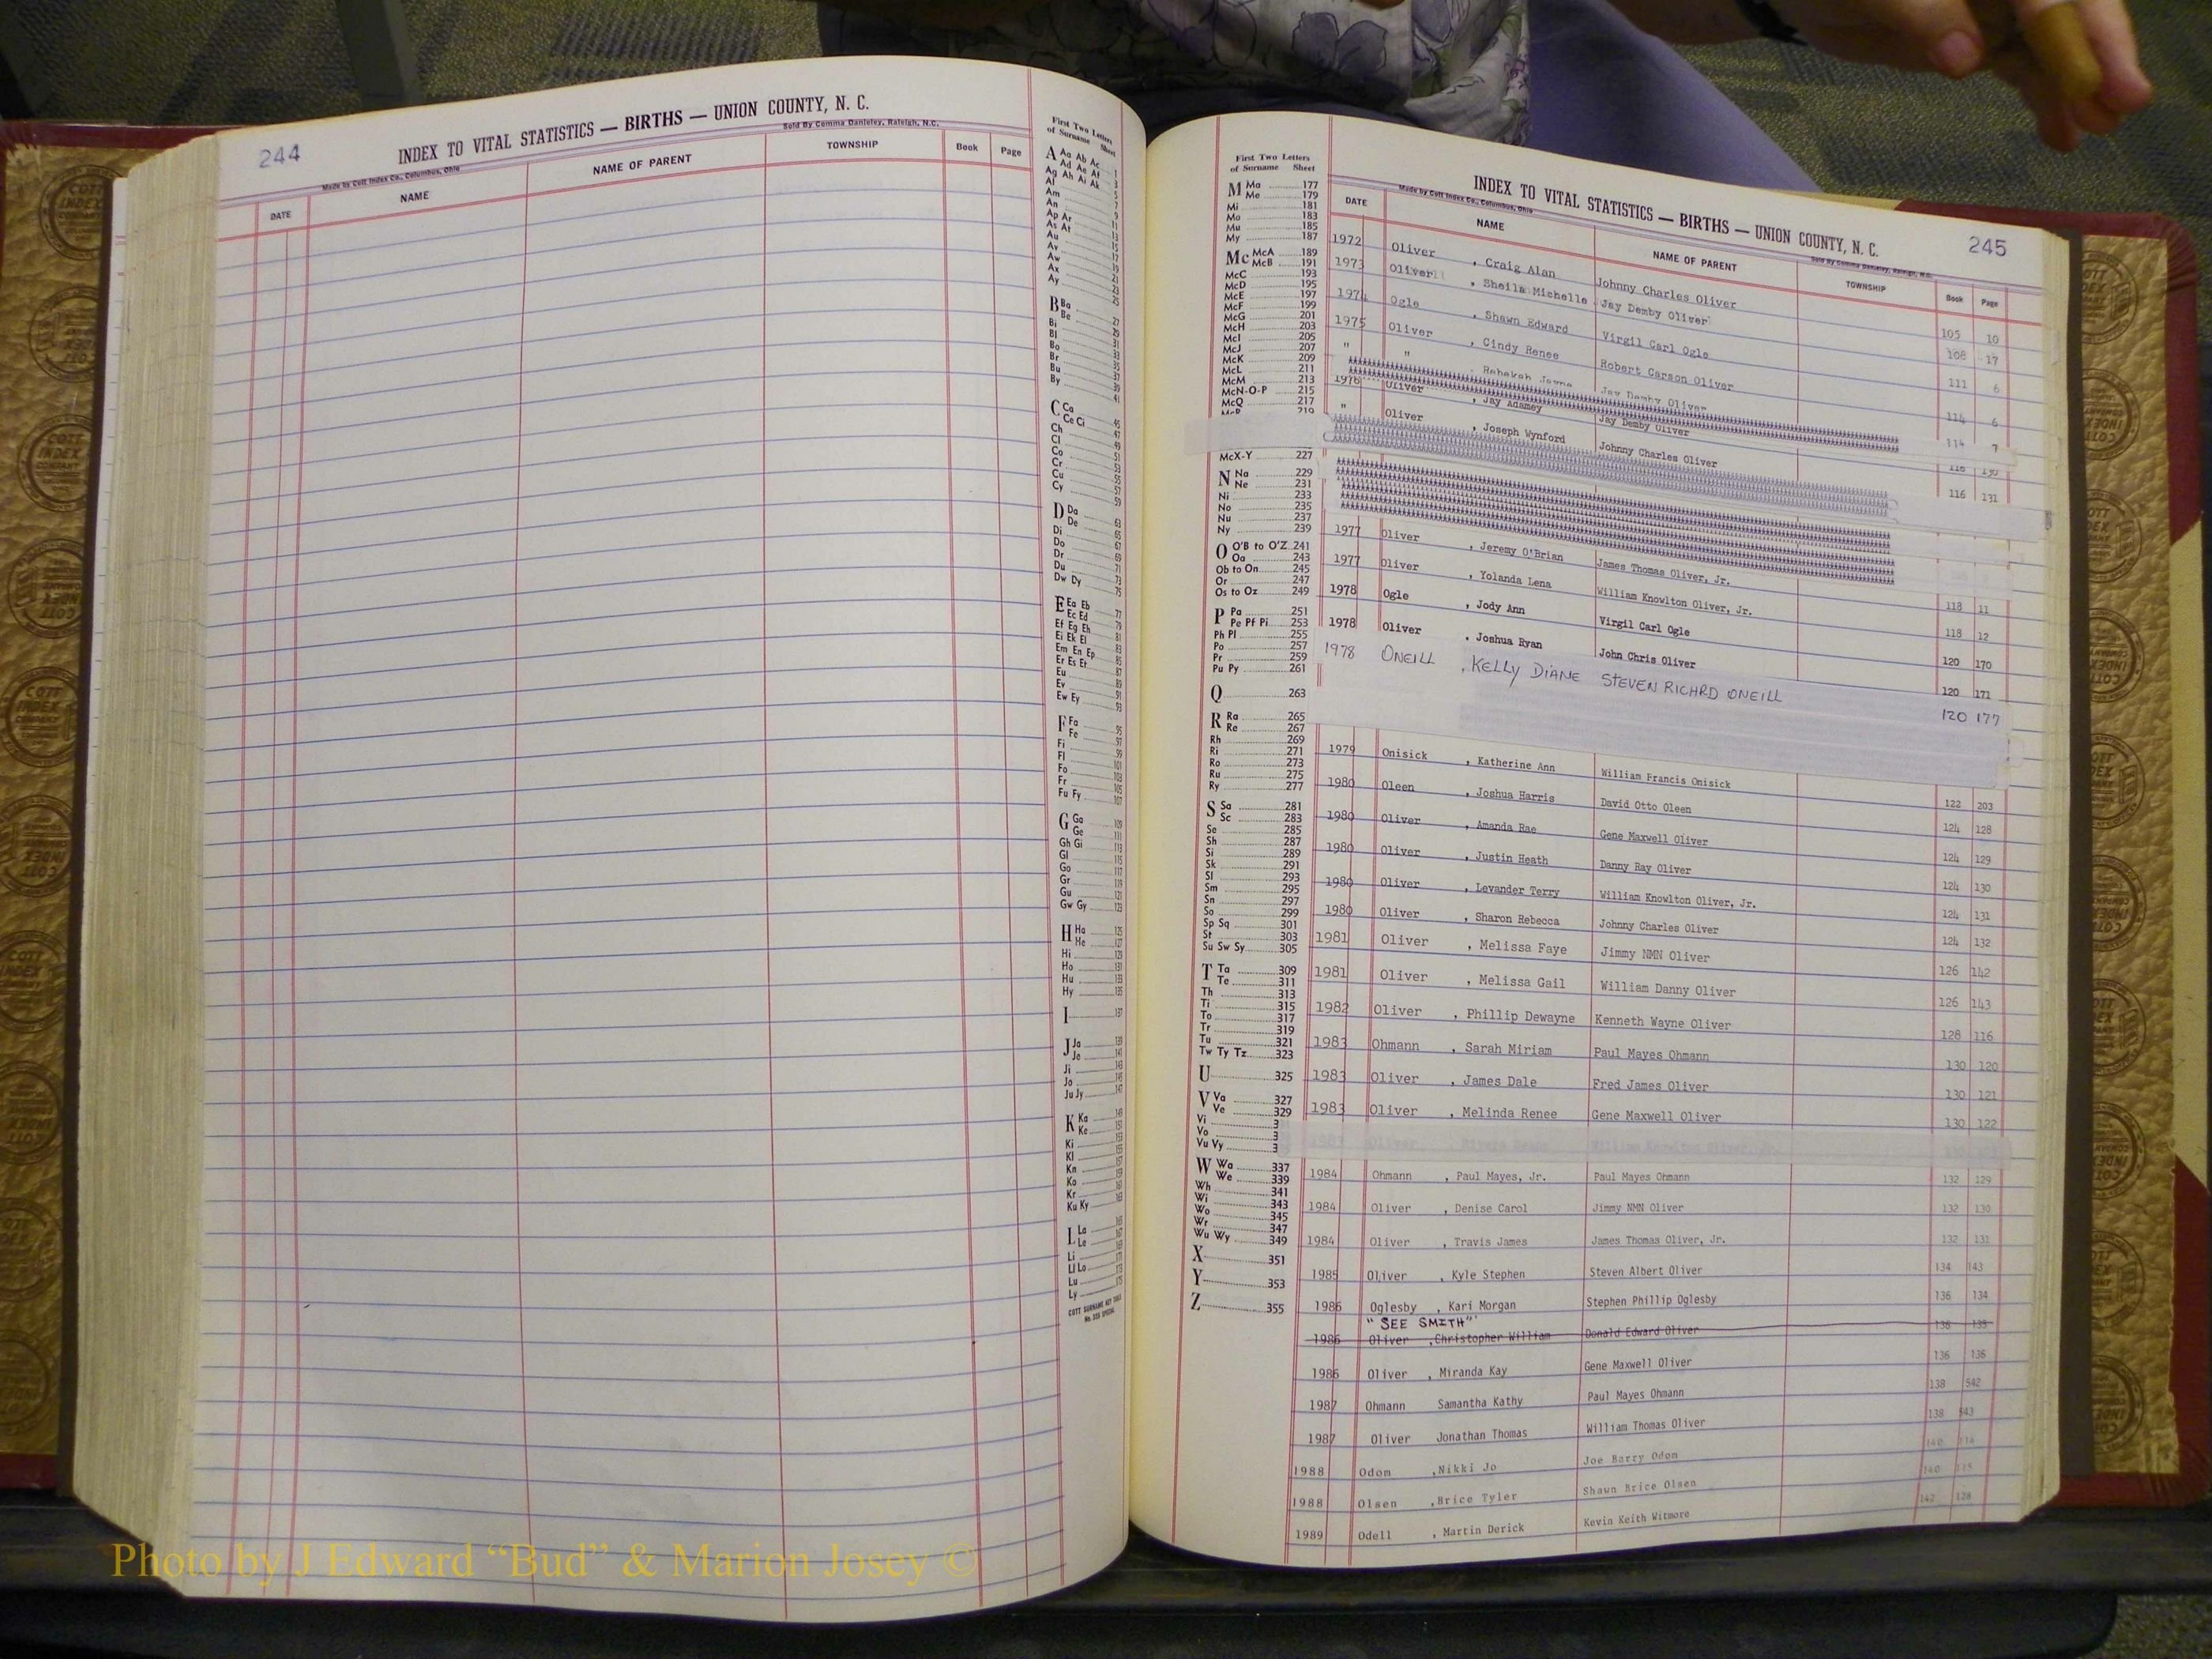 244
INDEX TO VITAL STATISTICS — BIRTHS — UNION COUNTY, N. C.
Made by Cott Index Co., Columbus, Ohio
Sold By Comma Danieley, Raleigh, N.C.
DATE NAME NAME OF PARENT TOWNSHIP Book Page
First Two Letters
of Surname Sheet
A Aa Ab Ac 1
Ad Ae Af 3
Ag Ah Ai Ak 5
Al 7
Am 9
An 11
Ap Ar 13
As At 15
Au 17
Av
Aw
Ax 23
Ay 25
B Ba 27
Be 29
Bi 31
Bl 33
Bo 35
Br 37
Bu 39
By 41
C Ca 45
Ce Ci 47
Ch 49
Cl 51
Co 53
Cr 55
Cu 57
Cy 59
D Da 63
De 65
Di 67
Do 69
Dr 71
Du 73
Dw Dy 75
E Ea Eb 77
Ec Ed 79
Ef Eg Eh 81
Ei Ek El 83
Em En Ep 85
Er Es Et 87
Eu 89
Ev 91
Ew Ey 93
F Fa 95
Fe 97
Fi 99
Fl 101
Fo 103
Fr 105
Fu Fy 107
G Ga 109
Ge 111
Gh Gi 113
Gl 115
Go 117
Gr 119
Gu 121
Gw Gy 123
H Ha 125
He 127
Hi 129
Ho 131
Hu 133
Hy 135
I 137
J Ja 139
Je 141
Ji 143
Jo 145
Ju Jy 147
K Ka 149
Ke 151
Ki 153
Kl 155
Kn 157
Ko 159
Kr 161
Ku Ky 163
L La 165
Le 167
Li 169
Ll Lo 171
Lu 173
Ly 175
COTT SURNAME KEY TABLE
First Two Letters
of Surname Sheet
M Ma 177
Me 179
Mi 181
Mo 183
Mu 185
My 187
Mc McA 189
McB 191
McC 193
McD 195
McE 197
McF 199
McG 201
McH 203
McI 205
McJ 207
McK 209
McL 211
McM 213
McN-O-P 215
McQ 217
McR 219
McX-Y 227
N Na 229
Ne 231
Ni 233
No 235
Nu 237
Ny 239
O O'B to O'Z 241
Oa 243
Ob to On 245
Or 247
Os to Oz 249
P Pa 251
Pe Pf Pi 253
Ph Pl 255
Po 257
Pr 259
Pu Py 261
Q 263
R Ra 265
Re 267
Rh 269
Ri 271
Ro 273
Ru 275
Ry 277
S Sa 281
Sc 283
Se 285
Sh 287
Si 289
Sk 291
Sl 293
Sm 295
Sn 297
So 299
Sp Sq 301
St 303
Su Sw Sy 305
T Ta 309
Te 311
Th 313
Ti 315
To 317
Tr 319
Tu 321
Tw Ty Tz 323
U 325
V Va 327
Ve 329
Vi 3
Vo 3
Vu Vy 3
W Wa 337
We 339
Wh 341
Wi 343
Wo 345
Wr 347
Wu Wy 349
X 351
Y 353
Z 355
INDEX TO VITAL STATISTICS — BIRTHS — UNION COUNTY, N. C.
245
Made by Cott Index Co., Columbus, Ohio
Sold By Comma Danieley, Raleigh, N.C.
DATE NAME NAME OF PARENT TOWNSHIP Book Page
1972 Oliver , Craig Alan Johnny Charles Oliver 105 10
1973 Oliver , Sheila Michelle Jay Demby Oliver 108 17
1974 Ogle , Shawn Edward Virgil Carl Ogle 111 6
1975 Oliver , Cindy Renee Robert Carson Oliver 114 6
" " Rebekah Jayne Jay Demby Oliver 114 7
1976 Oliver , Jay Adamey Jay Demby Oliver 116 130
" Oliver , Joseph Wynford Johnny Charles Oliver 116 131
1977 Oliver , Jeremy O'Brian James Thomas Oliver, Jr. 118 11
1977 Oliver , Yolanda Lena William Knowlton Oliver, Jr. 118 12
1978 Ogle , Jody Ann Virgil Carl Ogle 120 170
1978 Oliver , Joshua Ryan John Chris Oliver 120 171
1978 ONEILL , KELLY DIANE STEVEN RICHRD ONEILL 120 177
1979 Onisick , Katherine Ann William Francis Onisick 122 203
1980 Oleen , Joshua Harris David Otto Oleen 124 128
1980 Oliver , Amanda Rae Gene Maxwell Oliver 124 129
1980 Oliver , Justin Heath Danny Ray Oliver 124 130
1980 Oliver , Levander Terry William Knowlton Oliver, Jr. 124 131
1980 Oliver , Sharon Rebecca Johnny Charles Oliver 124 132
1981 Oliver , Melissa Faye Jimmy NMN Oliver 126 142
1981 Oliver , Melissa Gail William Danny Oliver 126 143
1982 Oliver , Phillip Dewayne Kenneth Wayne Oliver 128 116
1983 Ohmann , Sarah Miriam Paul Mayes Ohmann 130 120
1983 Oliver , James Dale Fred James Oliver 130 121
1983 Oliver , Melinda Renee Gene Maxwell Oliver 130 122
1984 Ohmann , Paul Mayes, Jr. Paul Mayes Ohmann 132 129
1984 Oliver , Denise Carol Jimmy NMN Oliver 132 130
1984 Oliver , Travis James James Thomas Oliver, Jr. 132 131
1985 Oliver , Kyle Stephen Steven Albert Oliver 134 143
1986 Oglesby , Kari Morgan Stephen Phillip Oglesby 136 134
"SEE SMITH"
1986 Oliver ,Christopher William Donald Edward Oliver 136 135
1986 Oliver , Miranda Kay Gene Maxwell Oliver 136 136
1987 Ohmann Samantha Kathy Paul Mayes Ohmann 138 542
1987 Oliver Jonathan Thomas William Thomas Oliver 138 543
1988 Odom ,Nikki Jo Joe Barry Odom 140 114
1988 Olsen ,Brice Tyler Shawn Brice Olsen 140 115
1989 Odell , Martin Derick Kevin Keith Witmore 142 128
Photo by J Edward “Bud” & Marion Josey ©